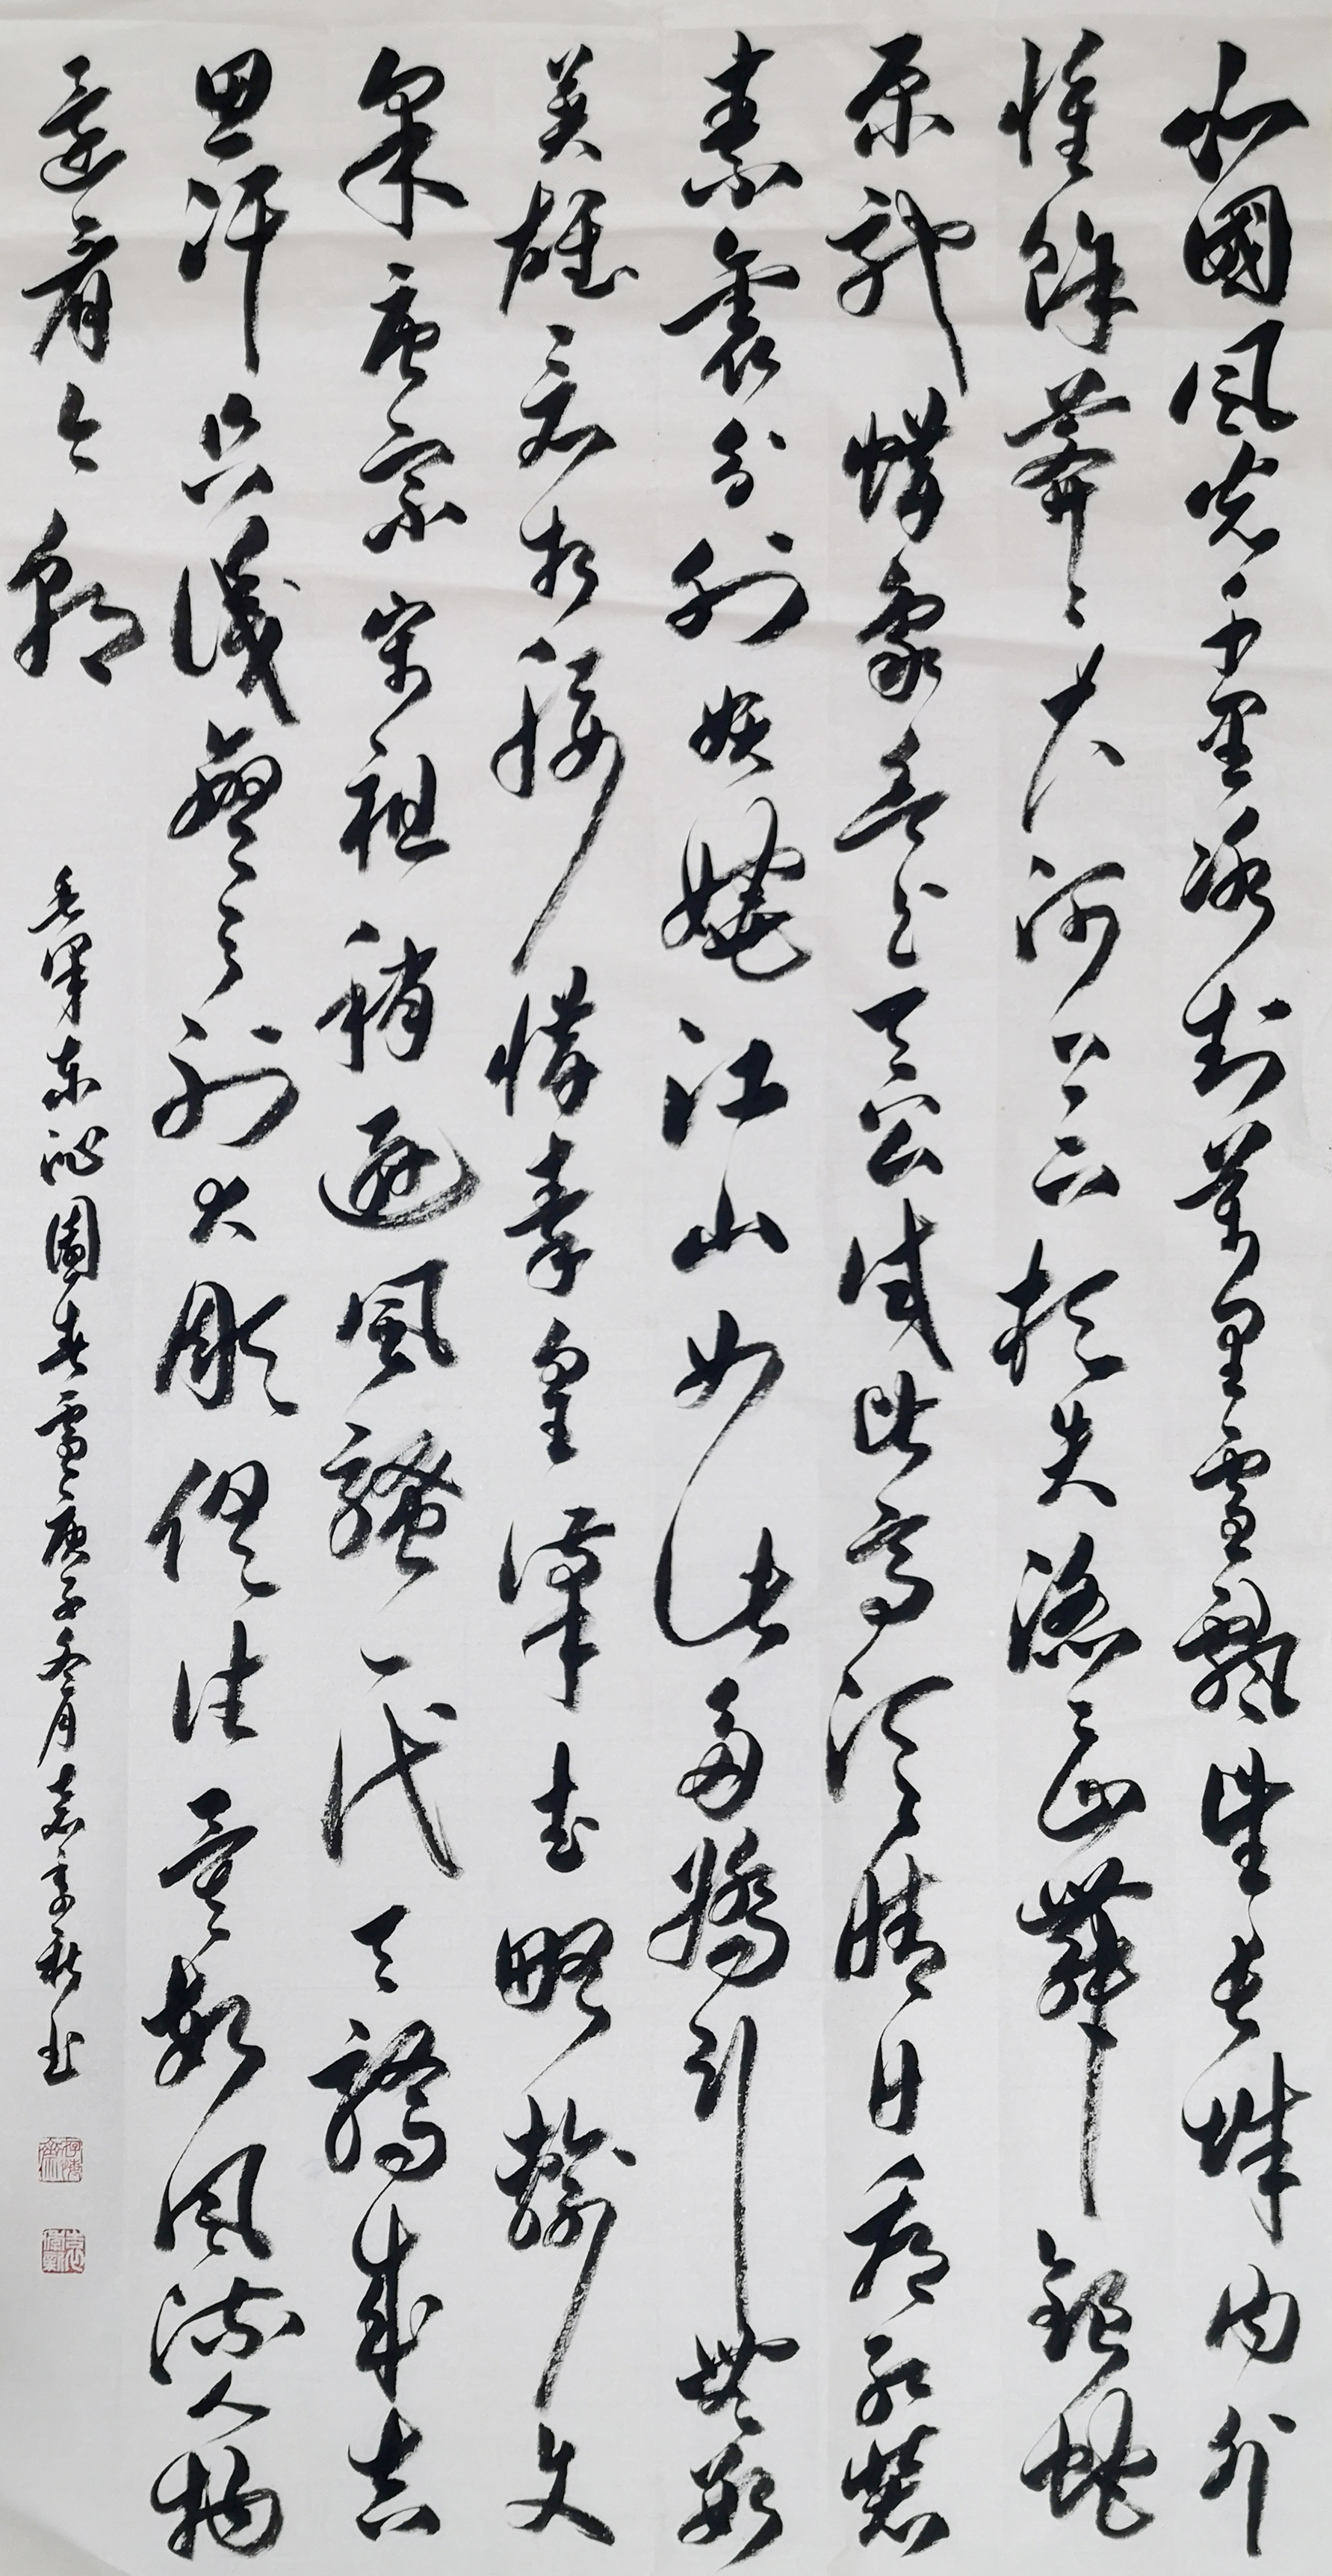 北國風光千里冰封萬里雪飄望長城內外
惟餘莽々大河上下頓失滔々山舞銀蛇
原馳蠟象欲與天公試比高須晴日看紅裝
素裹分外妖嬈江山如此多嬌引無數
英雄競折腰惜秦皇漢武略輸文
采唐宗宋祖稍遜風騷一代天驕成吉
思汗只識彎弓射大雕俱往矣數風流人物
還看今朝
毛澤東沁園春雪庚子冬月